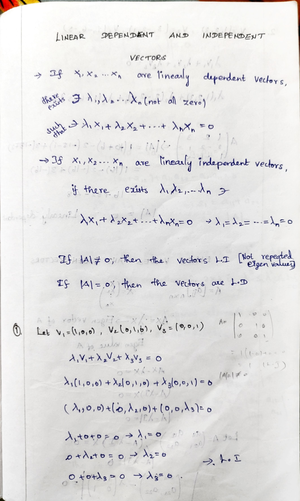 LINEAR DEPENDENT AND INDEPENDENT
VECTORS
→ If x₁, x₂ ... xₙ are linearly dependent vectors,
there exists ∋ λ₁, λ₂ ... λₙ (not all zero)
such that ∋ λ₁x₁ + λ₂x₂ + ... + λₙxₙ = 0
→ If x₁, x₂ ... xₙ are linearly independent vectors,
if there exists λ₁, λ₂, ... λₙ ∋
λx₁ + λ₂x₂ + ... + λₙxₙ = 0 → λ₁ = λ₂ = ... = λₙ = 0
If |A| ≠ 0, then the vectors L.I [Not repeated
Eigen values]
If |A| = 0, then the vectors are L.D
① Let V₁ = (1,0,0), V₂ (0,1,0), V₃ = (0,0,1)
λ₁V₁ + λ₂V₂ + λ₃V₃ = 0
λ₁(1,0,0) + λ₂(0,1,0) + λ₃(0,0,1) = 0
(λ₁,0,0) + (0,λ₂,0) + (0,0,λ₃) = 0
λ₁ + 0 + 0 = 0 → λ₁ = 0
0 + λ₂ + 0 = 0 → λ₂ = 0
→ L.I
0 + 0 + λ₃ = 0 → λ₃ = 0